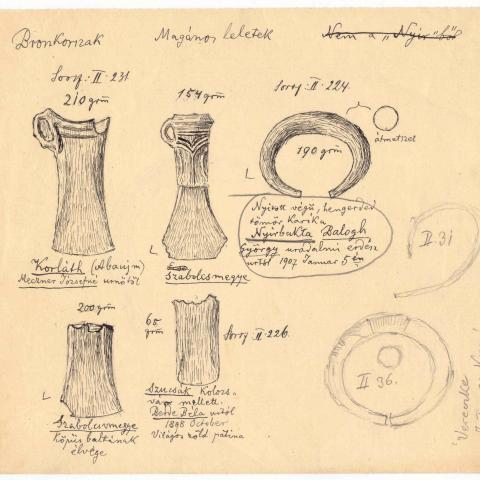 Bronkorszak
Magános leletek
Nem a „Nyír"ből
Sorsz. II. 231
210 grm
Korláth (Abaujm)
Meczner Józsefné urnőtől
154 grm
Szabolcsmegye
Sorsz. II. 224.
átmetszet
190 grm
L
Nyitott végű, hengerded
tömör karika
Nyirbakta Balogh
György uradalmi erdész
urtól 1907 Januar 5én
II. 31
200 grm
L
Szabolcsmegye
Köpüs baltának
élvége
68
grm
Sorsz. II. 226.
Szucsák Kolozs-
vár mellett.
Berde Béla urtól
1898 October
Világos zöld patina
II 36.
Vereczke